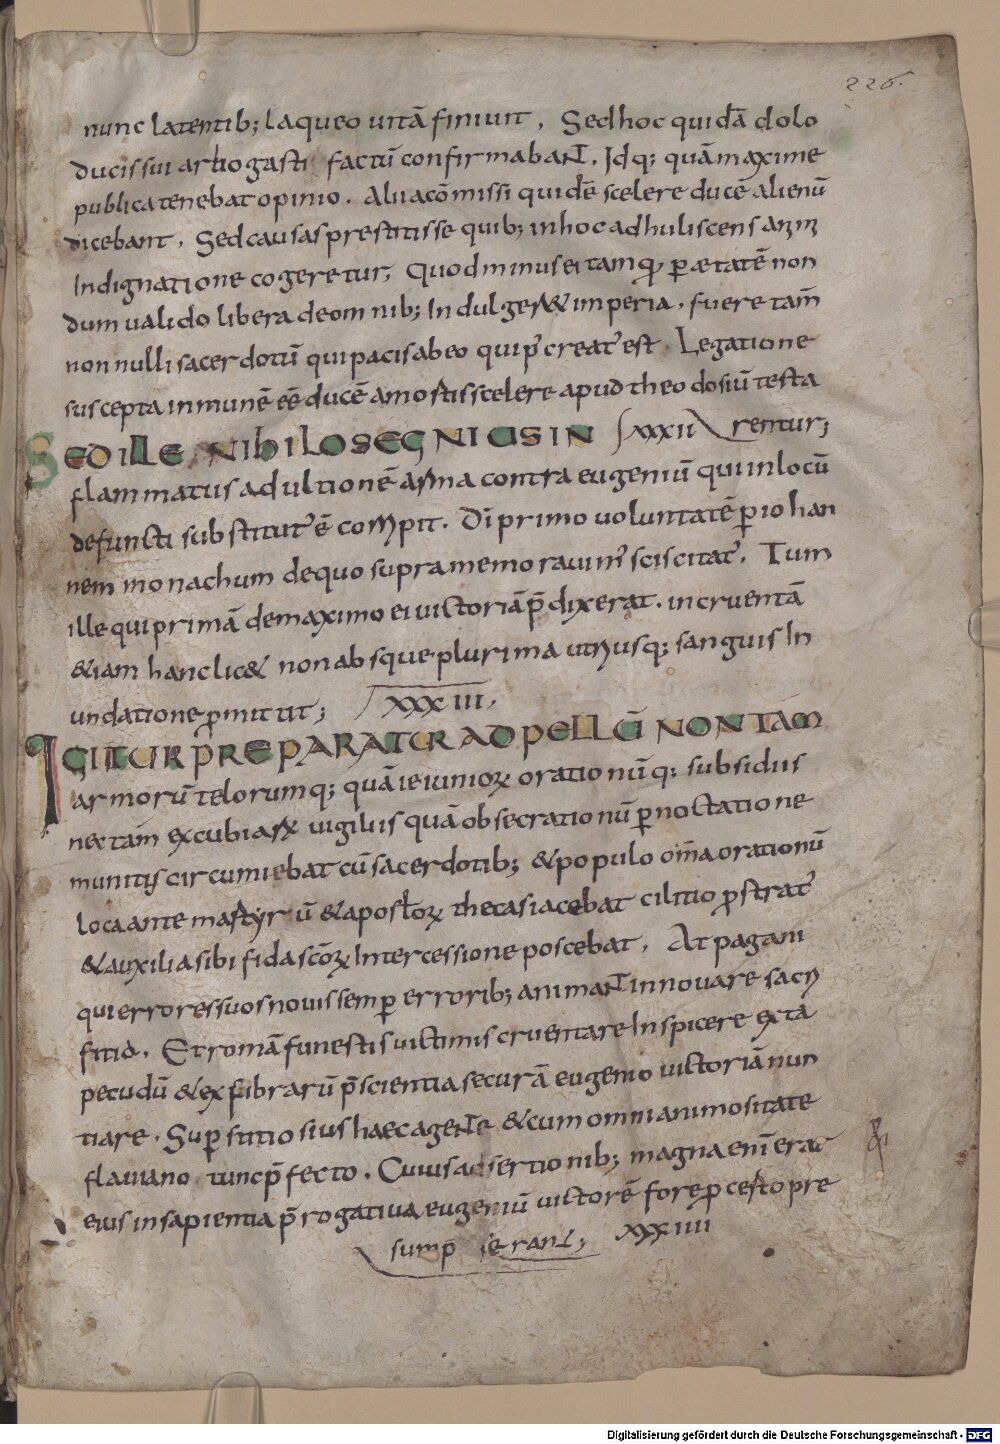 226.
nunc latentib; laqueo uitā finiuit. Sed hoc quidā dolo
ducis sui arbogasti factū confirmabaNT. Idq; quā maxime
publica tenebat opinio. Alii acōmissi quidē scelere ducē alienū
dicebant. Sed causas prestitisse quib; in hoc adhuliscens
Indignatione cogeretur, Quod minus ei tamq, p̄ ætatē non
dum ualido libera de omnib; Indulger& imperia. fuere tam̄
non nulli sacerdotū qui pacis ab eo qui p' creat' est Legatione
suscepta inmunē eē ducē amostis scelere apud theodosiū testa
SED ILLE NIHILO SEGNIUS IN XXXII renturi
flammatus ad ultionē arma contra eugeniū qui in locū
defuncti substitut' ē compit. Dī primo uoluntatē p̄ iohan
nem monachum de quo supra memorauim' sciscitat'. Tum
ille qui primā de maximo ei uictoriā p̄dixerat. incruentā
&iam hanc lic& non absque plurima utriusq; sanguis In
undatione p̄mittit; XXXIII.
IGITUR PREPARATUR AD PELLŪ NON TAM
armorū telorumq; quā ieiuniorꝝ orationūq; subsidiis
nec tam excubiarꝝ uigiliis quā obsecrationū p̄noctatione
munitis circumiebat cū sacerdotib; & populo om̄a orationū
loca ante martyrū & apostl̄orꝝ thecas iacebat cilitio p̄strat'
& auxilia sibi fida sc̄orꝝ Intercessione poscebat. At pagani
qui errores suos nouis semp̄ errorib; animaNT innouare sacri
fitia. Et romā funestis uictimis cruentare Inspicere exta
pecudū & ex fibrarū p̄scientia securā eugenio uictoriā nun
tiare. Sup̄stitiosius haec ageNTe & cum omni animositate
flauiano tunc p̄fecto. Cuius adsertionib; magna enī erat
eius in sapientia p̄rogatiua eugeniū uictorē fore p̄ certo pre
sump̄serant; XXXIIII
Digitalisierung gefördert durch die Deutsche Forschungsgemeinschaft - DFG